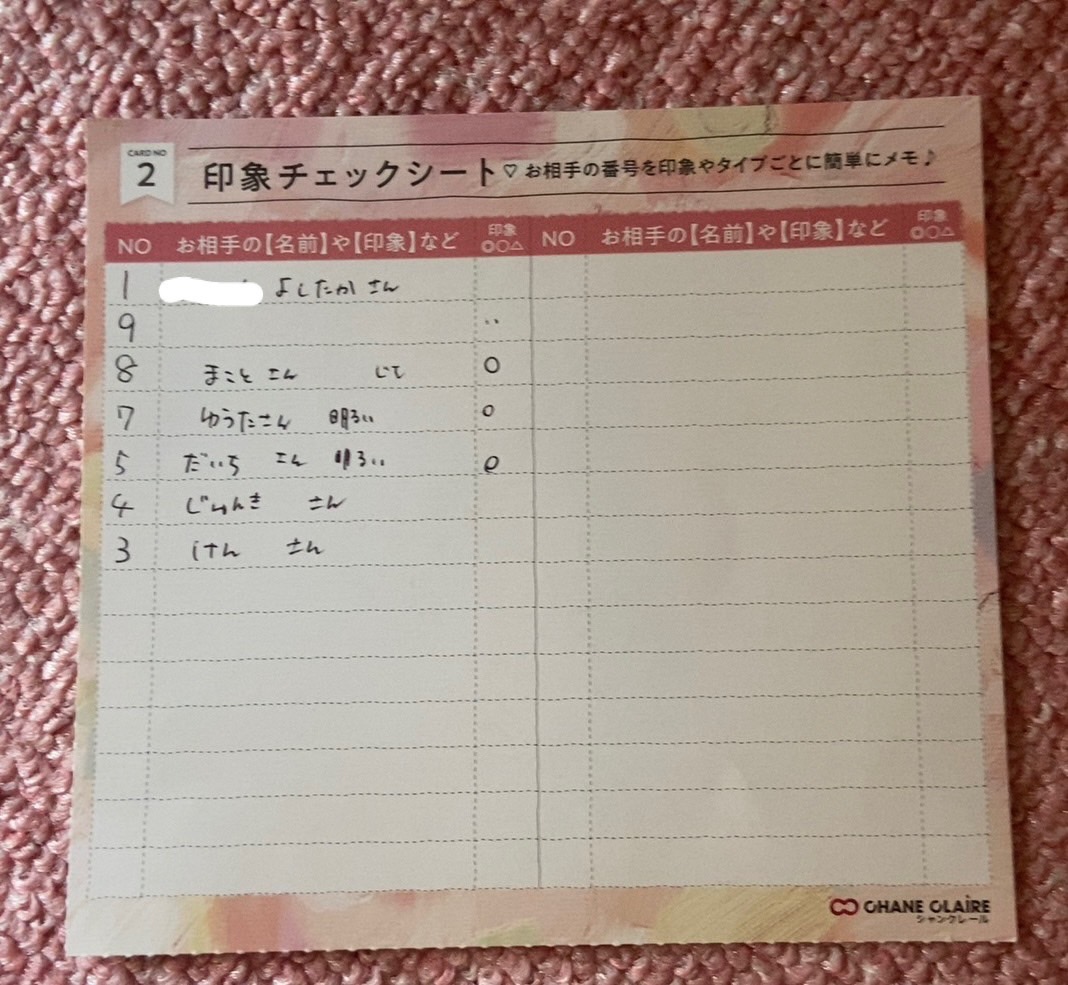 CARD NO
2
印象チェックシート♡お相手の番号を印象やタイプごとに簡単にメモ♪
NO お相手の【名前】や【印象】など 印象 ◎○△ NO お相手の【名前】や【印象】など 印象 ◎○△
1 よしたか さん
9
8 まこと さん ○
7 ゆうたさん 明るい ○
5 だいち さん 明るい ○
4 じゅんき さん
3 けん さん
CHANE CLAIRE
シャンクレール